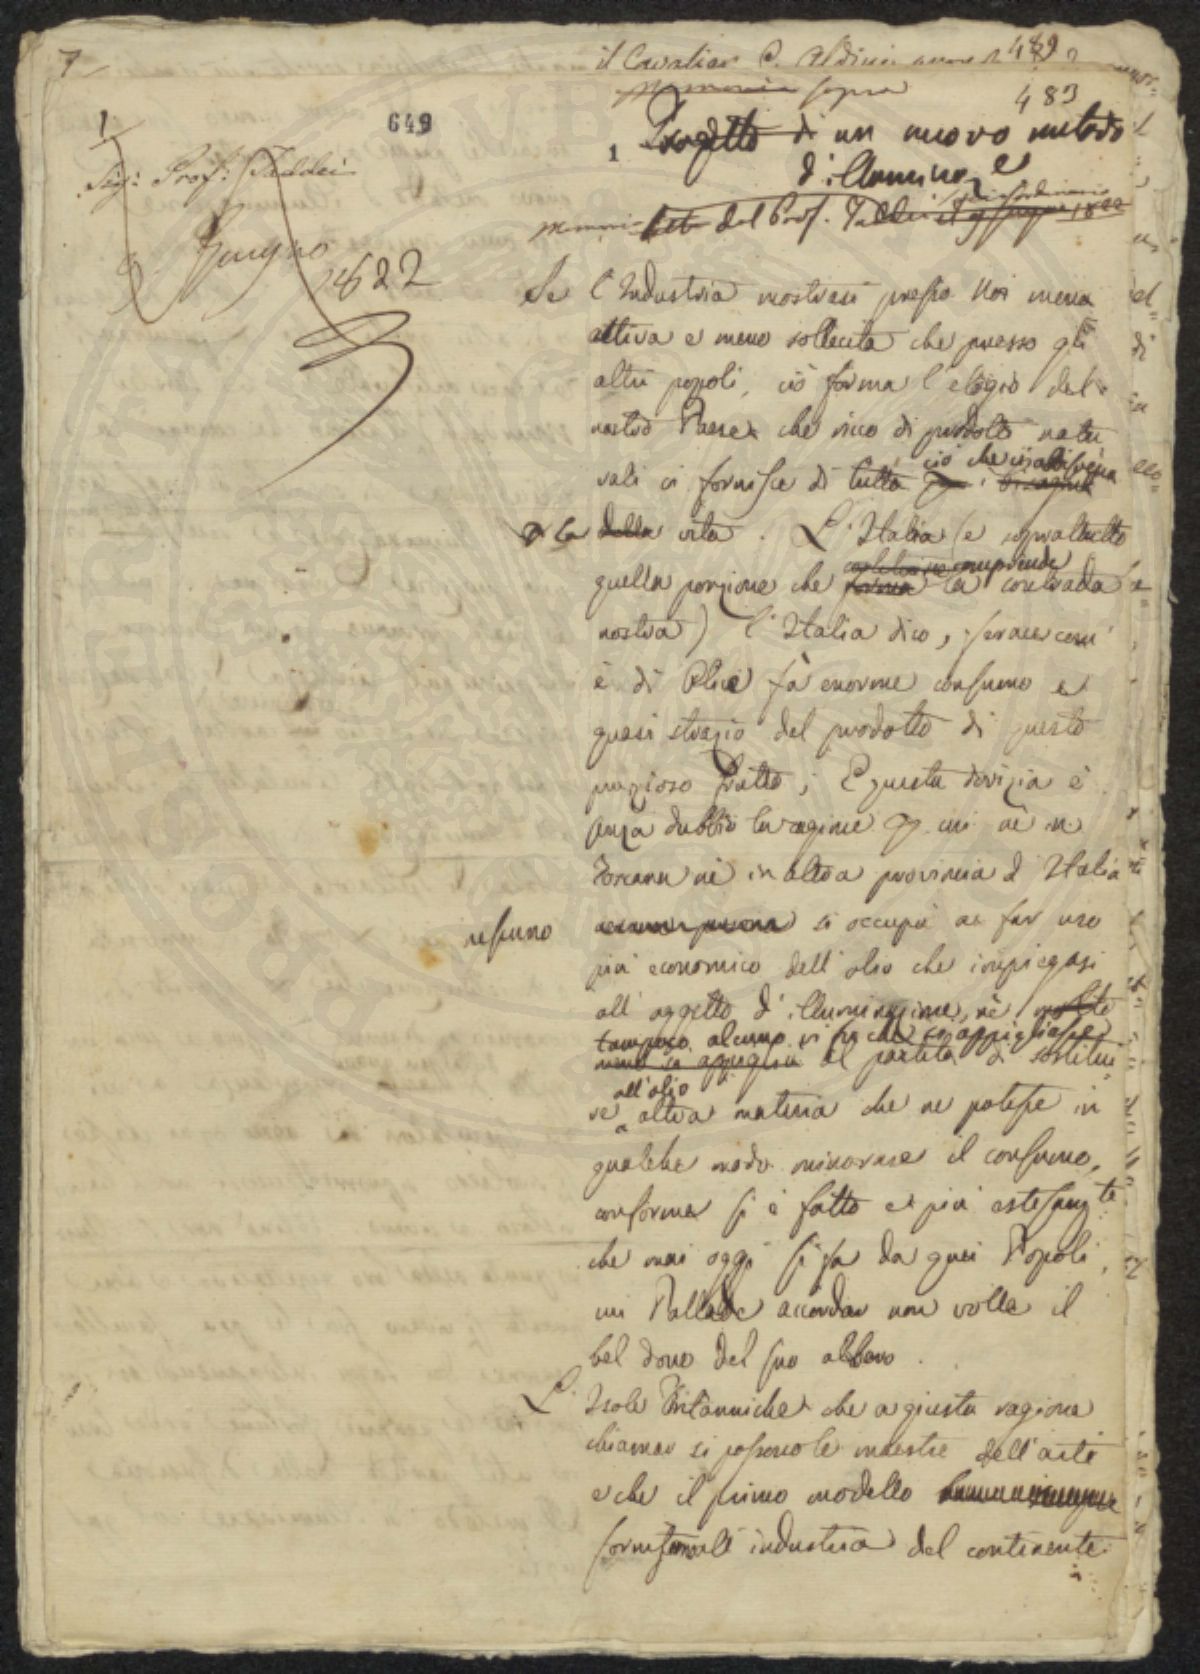 7
il Cavaliar C. Aldini
489
483
Memoria sopra
649
1
1
Progetto di un nuovo metodo
d'illuminaz.e
Sig: Prof: Taddei
del Prof. Taddei 1822
Giugno
1822
Se l'Industria mostrasi presso Noi meno
attiva e meno sollecita che presso gli
altri popoli, ciò forma l'elogio del
nostro Paese che ricco di prodotti natu
rali ci fornisce di tutto ciò che
bisogni
della vita. L'Italia (e soprattutto
comprende
quella porzione che forma la contrada
nostra) l'Italia dico, ferace com'
è di Olivi fà enorme consumo e
quasi strazio del prodotto di questo
prezioso frutto; E questa dovizia è
senza dubbio la cagione per cui nè in
Toscana nè in altra provincia d'Italia
nessuno
nessuna persona si occupò a far uso
più economico dell'olio che impiegasi
all'oggetto d'illuminazione, nè molto
tampoco alcuno vi fu che si appigliasse
meno si appigliò al partito di sostitui
all'olio
re altra materia che ne potesse in
qualche modo minorare il consumo,
conforme si è fatto e più estesam.te
che mai oggi si fa da quei Popoli,
cui Pallade accordar non volle il
bel dono del suo albero.
L'Isole Britanniche che a giusta ragione
chiamar si possono le maestre dell'arti
e che il primo modello
all'industria del continente